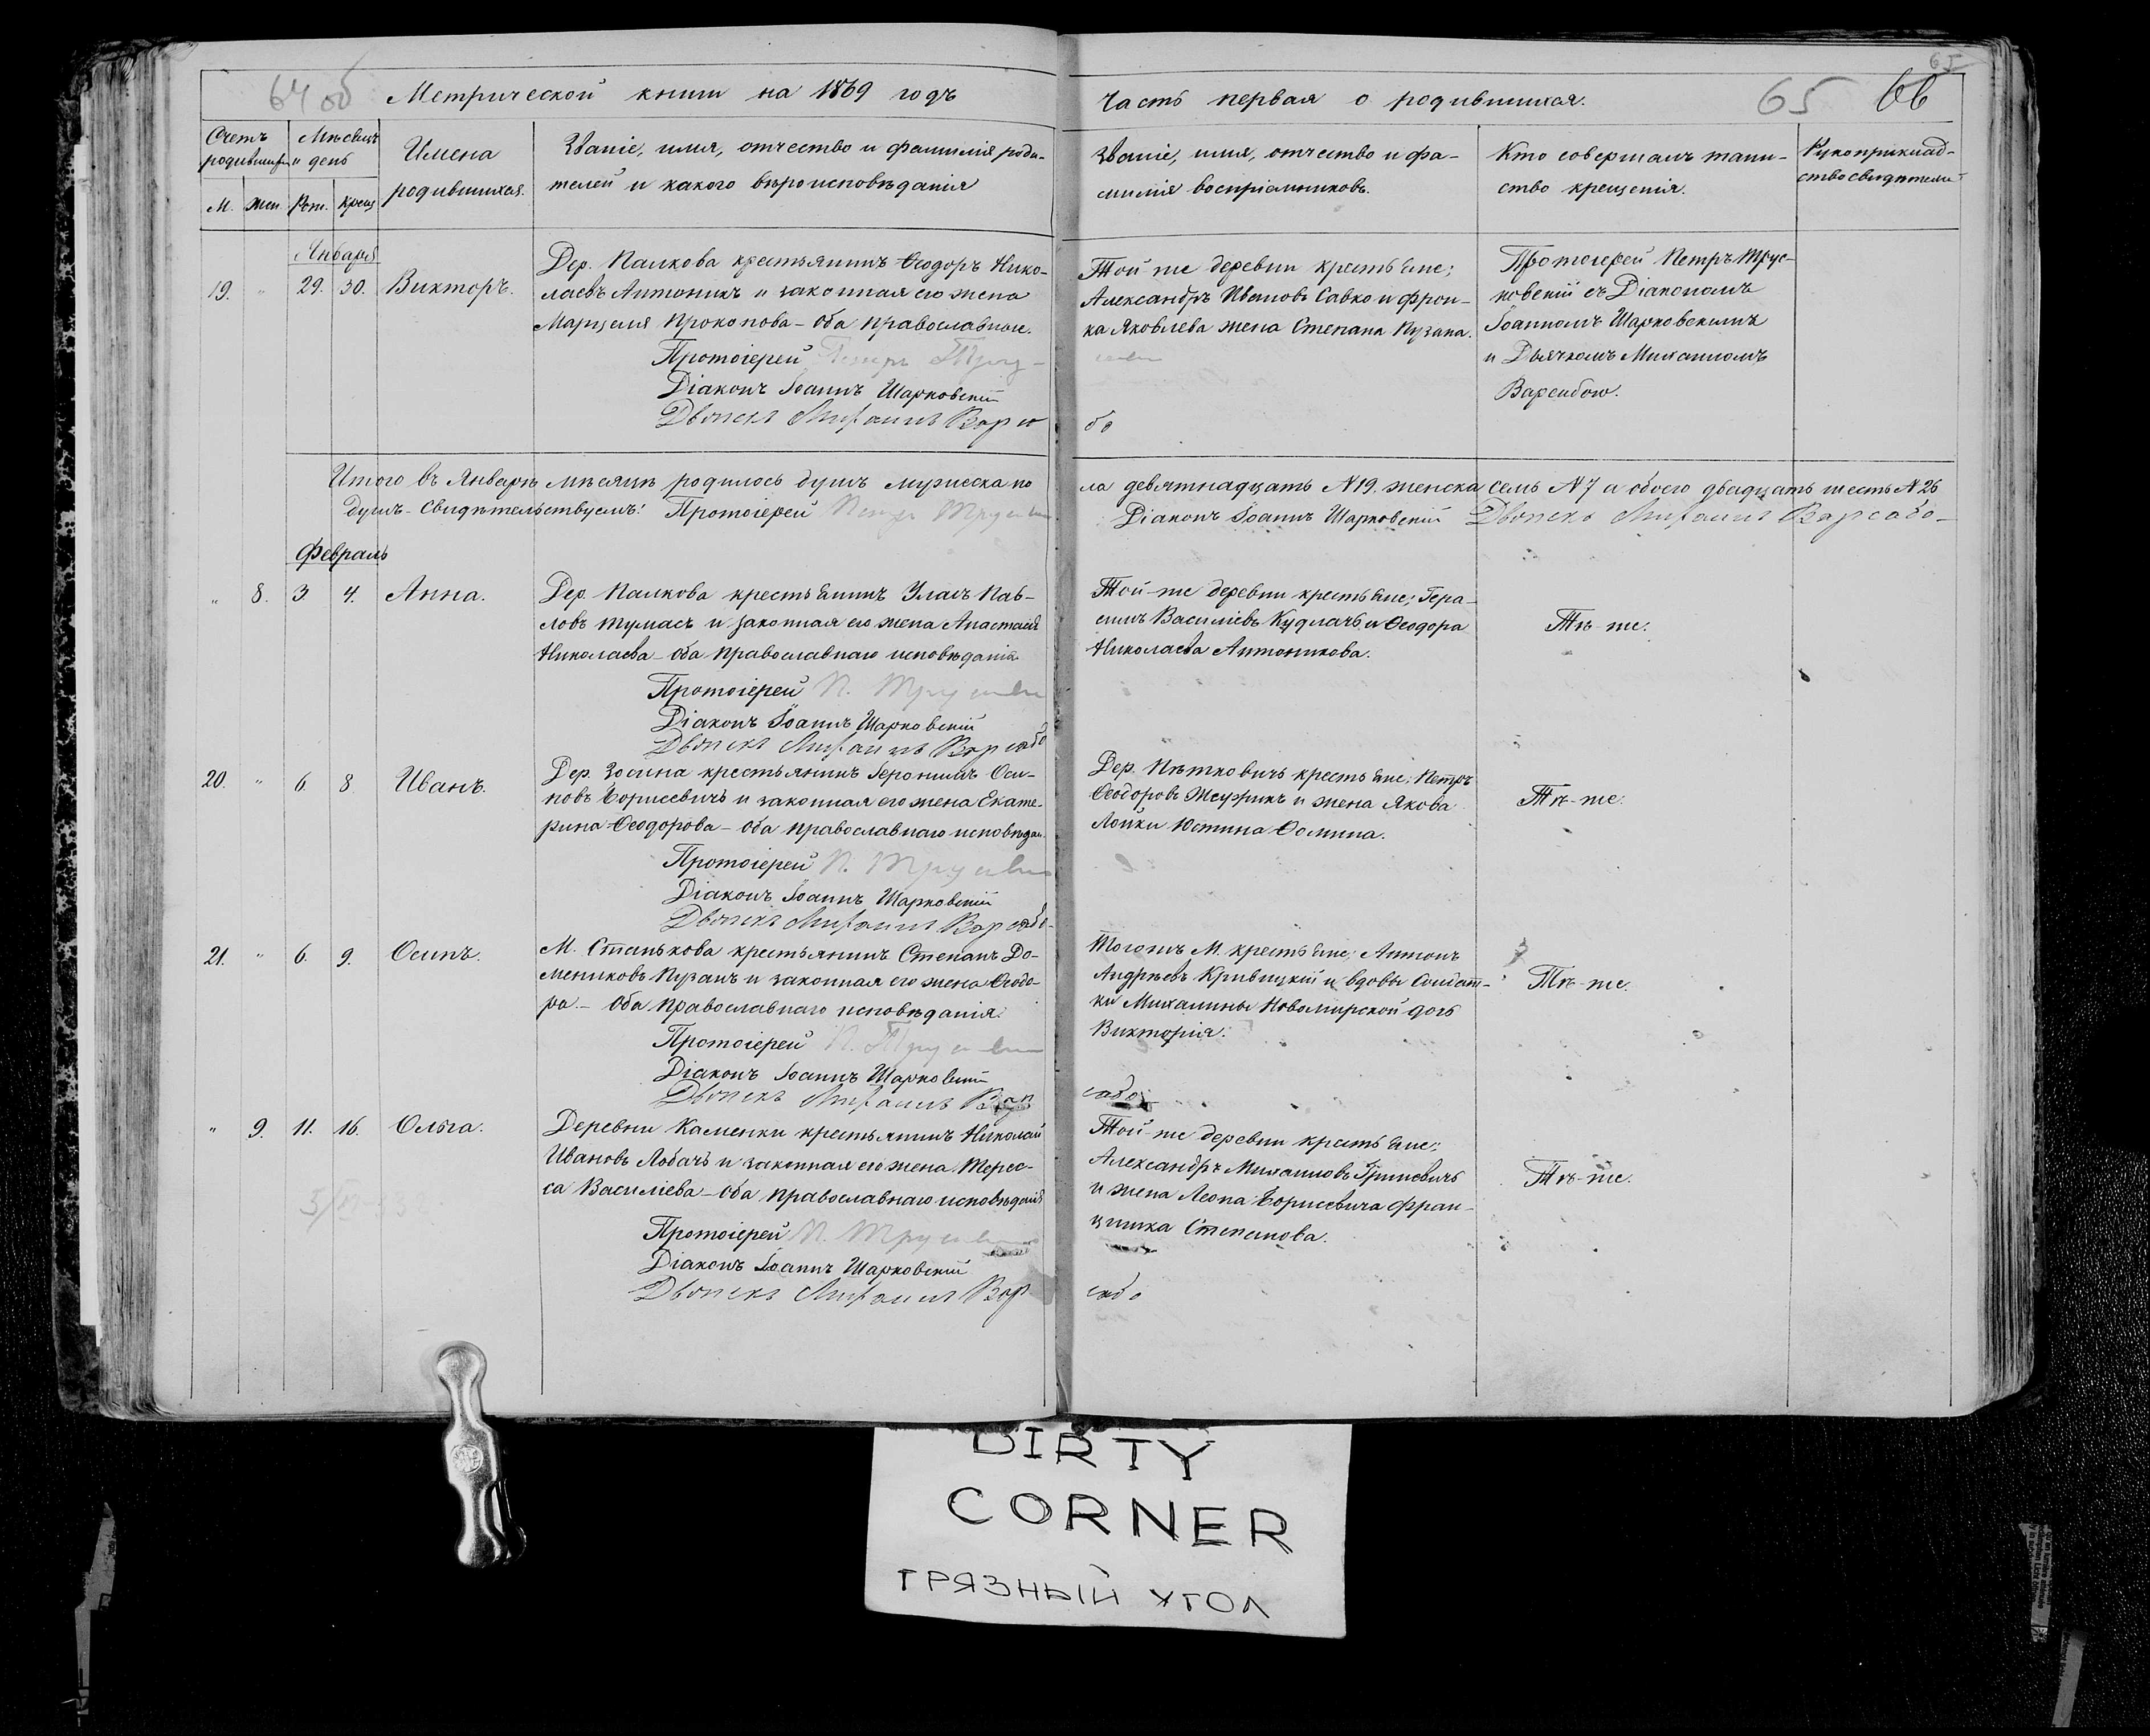 64 об Метрической книги на 1869 годъ
Часть первая о родившихся.
65 66
65
Счетъ родившихся
Мѣсяцъ и день
Имена родившихся.
Званіе, имя, отчество и фамилія роди-
телей и какого вѣроисповѣданія
Званіе, имя, отчество и фа-
милія воспріемниковъ.
Кто совершалъ таин-
ство крещенія.
Рукоприклад-
ство свидѣтелей
М. Жен. Рож. Крещ
Января
19. " 29. 30. Викторъ.
Дер. Палкова крестьянинъ Ѳеодоръ Нико-
лаевъ Антоникъ и законная его жена
Марцеля Прокопова - оба православные.
Протоіерей Петръ
Діаконъ Іоаннъ Шарковскій
Дьячекъ Михаилъ
Той-же деревни крестьяне;
Александръ Ивановъ Савко и Фрон-
ка Яковлева жена Степана Пузана.
Протоіерей Петръ Трус-
ковскій съ Діакономъ
Іоанномъ Шарковскимъ
и Дьячкомъ Михаиломъ
Итого въ Январѣ мѣсяцѣ родилось душъ мужеска по
ла девятнадцать №19, женска семь №7 а обоего двадцать шесть №26
душъ - Свидѣтельствуемъ: Протоіерей Петръ
Діаконъ Іоаннъ Шарковскій Дьячекъ Михаилъ
Февраль
" 8. 3. 4. Анна.
Дер. Палкова крестьянинъ Уласъ Пав-
ловъ Тумасъ и законная его жена Анастасія
Николаева - оба православнаго исповѣданія
Протоіерей П.
Діаконъ Іоаннъ Шарковскій
Дьячекъ Михаилъ
Той-же деревни крестьяне; Гера-
симъ Василіевъ Кудлачъ и Ѳеодора
Николаева Антоникова.
Тѣ-же.
20. " 6. 8. Иванъ.
Дер. Зосина крестьянинъ Іеронимъ Оси-
повъ Борисевичъ и законная его жена Екате-
рина Ѳеодорова - оба православнаго исповѣдан.
Протоіерей П.
Діаконъ Іоаннъ Шарковскій
Дьячекъ Михаилъ
Дер. Пѣтковичъ крестьяне: Петръ
Ѳеодоровъ и жена Якова
Лойки Юстина Ѳомина.
Тѣ-же.
21. " 6. 9. Осипъ.
М. Станькова крестьянинъ Степанъ До-
мениковъ Пузанъ и законная его жена Ѳеодо-
ра. - Оба православнаго исповѣданія.
Протоіерей П.
Діаконъ Іоаннъ Шарковскій
Дьячекъ Михаилъ
Тогожъ М. крестьяне; Антонъ
Андрѣевъ Кривицкій и вдовы Солдат-
ки Михалины Новомирской дочь
Викторія.
Тѣ-же.
" 9. 11. 16. Ольга.
Деревни Каменки крестьянинъ Николай
Ивановъ Лобачъ и законная его жена Терес-
са Василіева - Оба православнаго исповѣданія
Протоіерей П.
Діаконъ Іоаннъ Шарковскій
Дьячекъ Михаилъ
Той-же деревни крестьяне;
Александръ Михаиловъ Гриневичъ
и жена Леона Борисевича Фран-
цишка Степанова.
Тѣ-же.
DIRTY
CORNER
ГРЯЗНЫЙ УГОЛ